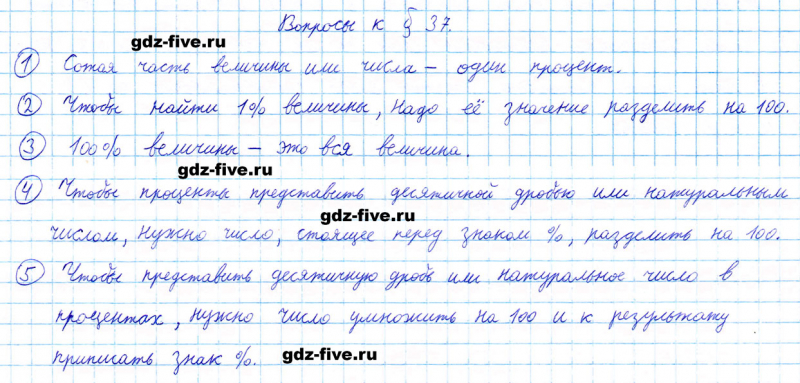 Вопросы к § 37.
gdz-five.ru
1 Сотая часть величины или числа – один процент.
2 Чтобы найти 1% величины, надо её значение разделить на 100.
3 100% величины – это вся величина.
gdz-five.ru
4 Чтобы проценты представить десятичной дробью или натуральным
gdz-five.ru
числом, нужно число, стоящее перед знаком %, разделить на 100.
5 Чтобы представить десятичную дробь или натуральное число в
процентах, нужно число умножить на 100 и к результату
приписать знак %.
gdz-five.ru